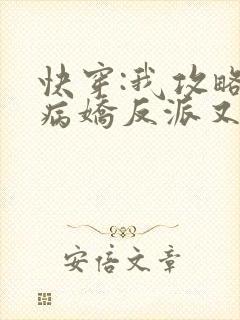 快穿:我攻略
病娇反派又
安倍文章